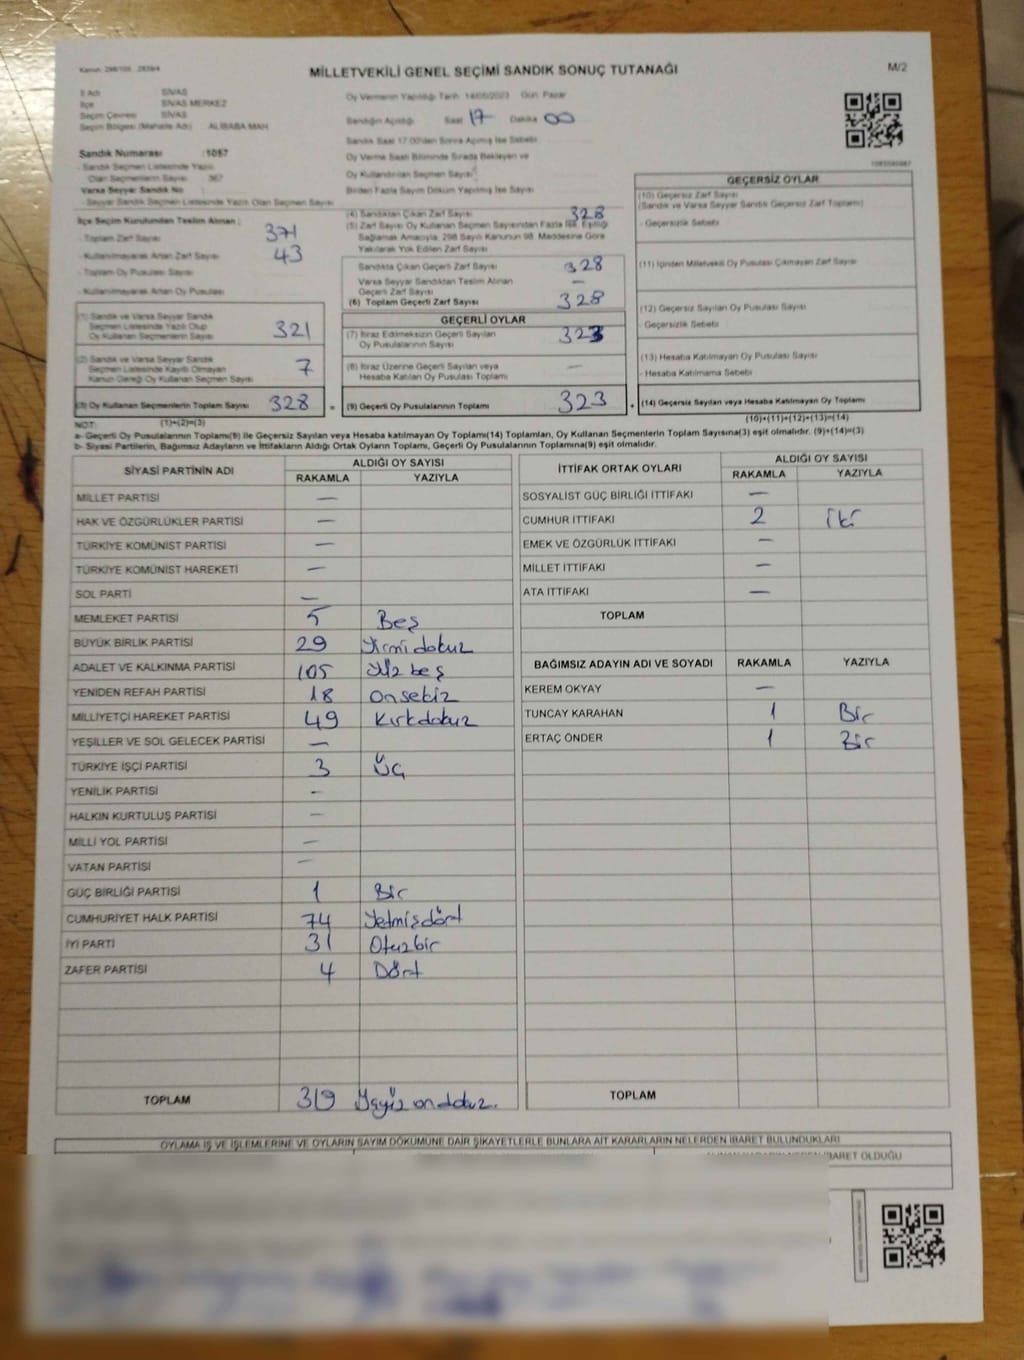 MİLLETVEKİLİ GENEL SEÇİMİ SANDIK SONUÇ TUTANAĞI
M/2
İl Adı SİVAS
İlçe SİVAS MERKEZ
Seçim Çevresi SİVAS
Seçim Bölgesi (Mahalle Adı) ALİBABA MAH.
Sandık Numarası :1057
- Sandık Seçmen Listesinde Yazılı
Olan Seçmenlerin Sayısı 367
Varsa Seyyar Sandık No
- Seyyar Sandık Seçmen Listesinde Yazılı Olan Seçmen Sayısı
Oy Vermenin Yapıldığı Tarih 14/05/2023 Gün Pazar
Sandığın Açıldığı Saat 17 Dakika 00
Sandık Saat 17.00'den Sonra Açılmış İse Sebebi
Oy Verme Saati Bitiminde Sırada Bekleyen ve
Oy Kullandırılan Seçmen Sayısı
Birden Fazla Sayım Döküm Yapılmış İse Sayısı
İlçe Seçim Kurulundan Teslim Alınan :
- Toplam Zarf Sayısı 371
- Kullanılmayarak Artan Zarf Sayısı 43
- Toplam Oy Pusulası Sayısı
- Kullanılmayarak Artan Oy Pusulası
(1) Sandık ve Varsa Seyyar Sandık
Seçmen Listesinde Yazılı Olup
Oy Kullanan Seçmenlerin Sayısı 321
(2) Sandık ve Varsa Seyyar Sandık
Seçmen Listesinde Kayıtlı Olmayan
Kanun Gereği Oy Kullanan Seçmen Sayısı 7
(3) Oy Kullanan Seçmenlerin Toplam Sayısı 328
(1)+(2)=(3)
(4) Sandıktan Çıkan Zarf Sayısı 328
(5) Zarf Sayısı Oy Kullanan Seçmen Sayısından Fazla İse, Eşitliği
Sağlamak Amacıyla, 298 Sayılı Kanunun 98. Maddesine Göre
Yakılarak Yok Edilen Zarf Sayısı
Sandıkta Çıkan Geçerli Zarf Sayısı 328
Varsa Seyyar Sandıktan Teslim Alınan
Geçerli Zarf Sayısı —
(6) Toplam Geçerli Zarf Sayısı 328
GEÇERLİ OYLAR
(7) İtiraz Edilmeksizin Geçerli Sayılan
Oy Pusulalarının Sayısı 323
(8) İtiraz Üzerine Geçerli Sayılan veya
Hesaba Katılan Oy Pusulası Toplamı —
= (9) Geçerli Oy Pusulalarının Toplamı 323
GEÇERSİZ OYLAR
(10) Geçersiz Zarf Sayısı
(Sandık ve Varsa Seyyar Sandık Geçersiz Zarf Toplamı)
- Geçersizlik Sebebi
(11) İçinden Milletvekili Oy Pusulası Çıkmayan Zarf Sayısı
(12) Geçersiz Sayılan Oy Pusulası Sayısı
- Geçersizlik Sebebi
(13) Hesaba Katılmayan Oy Pusulası Sayısı
- Hesaba Katılmama Sebebi
+ (14) Geçersiz Sayılan veya Hesaba Katılmayan Oy Toplamı
(10)+(11)+(12)+(13)=(14)
NOT:
a- Geçerli Oy Pusulalarının Toplamı(9) ile Geçersiz Sayılan veya Hesaba katılmayan Oy Toplamı(14) Toplamları, Oy Kullanan Seçmenlerin Toplam Sayısına(3) eşit olmalıdır. (9)+(14)=(3)
b- Siyasi Partilerin, Bağımsız Adayların ve İttifakların Aldığı Ortak Oyların Toplamı, Geçerli Oy Pusulalarının Toplamına(9) eşit olmalıdır.
SİYASİ PARTİNİN ADI ALDIĞI OY SAYISI
RAKAMLA YAZIYLA
MİLLET PARTİSİ —
HAK VE ÖZGÜRLÜKLER PARTİSİ —
TÜRKİYE KOMÜNİST PARTİSİ —
TÜRKİYE KOMÜNİST HAREKETİ —
SOL PARTİ —
MEMLEKET PARTİSİ 5 Beş
BÜYÜK BİRLİK PARTİSİ 29 Yirmi dokuz
ADALET VE KALKINMA PARTİSİ 105 Yüz beş
YENİDEN REFAH PARTİSİ 18 Onsekiz
MİLLİYETÇİ HAREKET PARTİSİ 49 Kırkdokuz
YEŞİLLER VE SOL GELECEK PARTİSİ —
TÜRKİYE İŞÇİ PARTİSİ 3 Üç
YENİLİK PARTİSİ -
HALKIN KURTULUŞ PARTİSİ —
MİLLİ YOL PARTİSİ —
VATAN PARTİSİ —
GÜÇ BİRLİĞİ PARTİSİ 1 Bir
CUMHURİYET HALK PARTİSİ 74 Yetmişdört
İYİ PARTİ 31 Otuzbir
ZAFER PARTİSİ 4 Dört
TOPLAM 319 Üçyüz ondokuz.
İTTİFAK ORTAK OYLARI ALDIĞI OY SAYISI
RAKAMLA YAZIYLA
SOSYALİST GÜÇ BİRLİĞİ İTTİFAKI —
CUMHUR İTTİFAKI 2 İki
EMEK VE ÖZGÜRLÜK İTTİFAKI —
MİLLET İTTİFAKI —
ATA İTTİFAKI —
TOPLAM
BAĞIMSIZ ADAYIN ADI VE SOYADI RAKAMLA YAZIYLA
KEREM OKYAY —
TUNCAY KARAHAN 1 Bir
ERTAÇ ÖNDER 1 Bir
TOPLAM
OYLAMA İŞ VE İŞLEMLERİNE VE OYLARIN SAYIM DÖKÜMÜNE DAİR ŞİKAYETLERLE BUNLARA AİT KARARLARIN NELERDEN İBARET BULUNDUKLARI
İBARET OLDUĞU